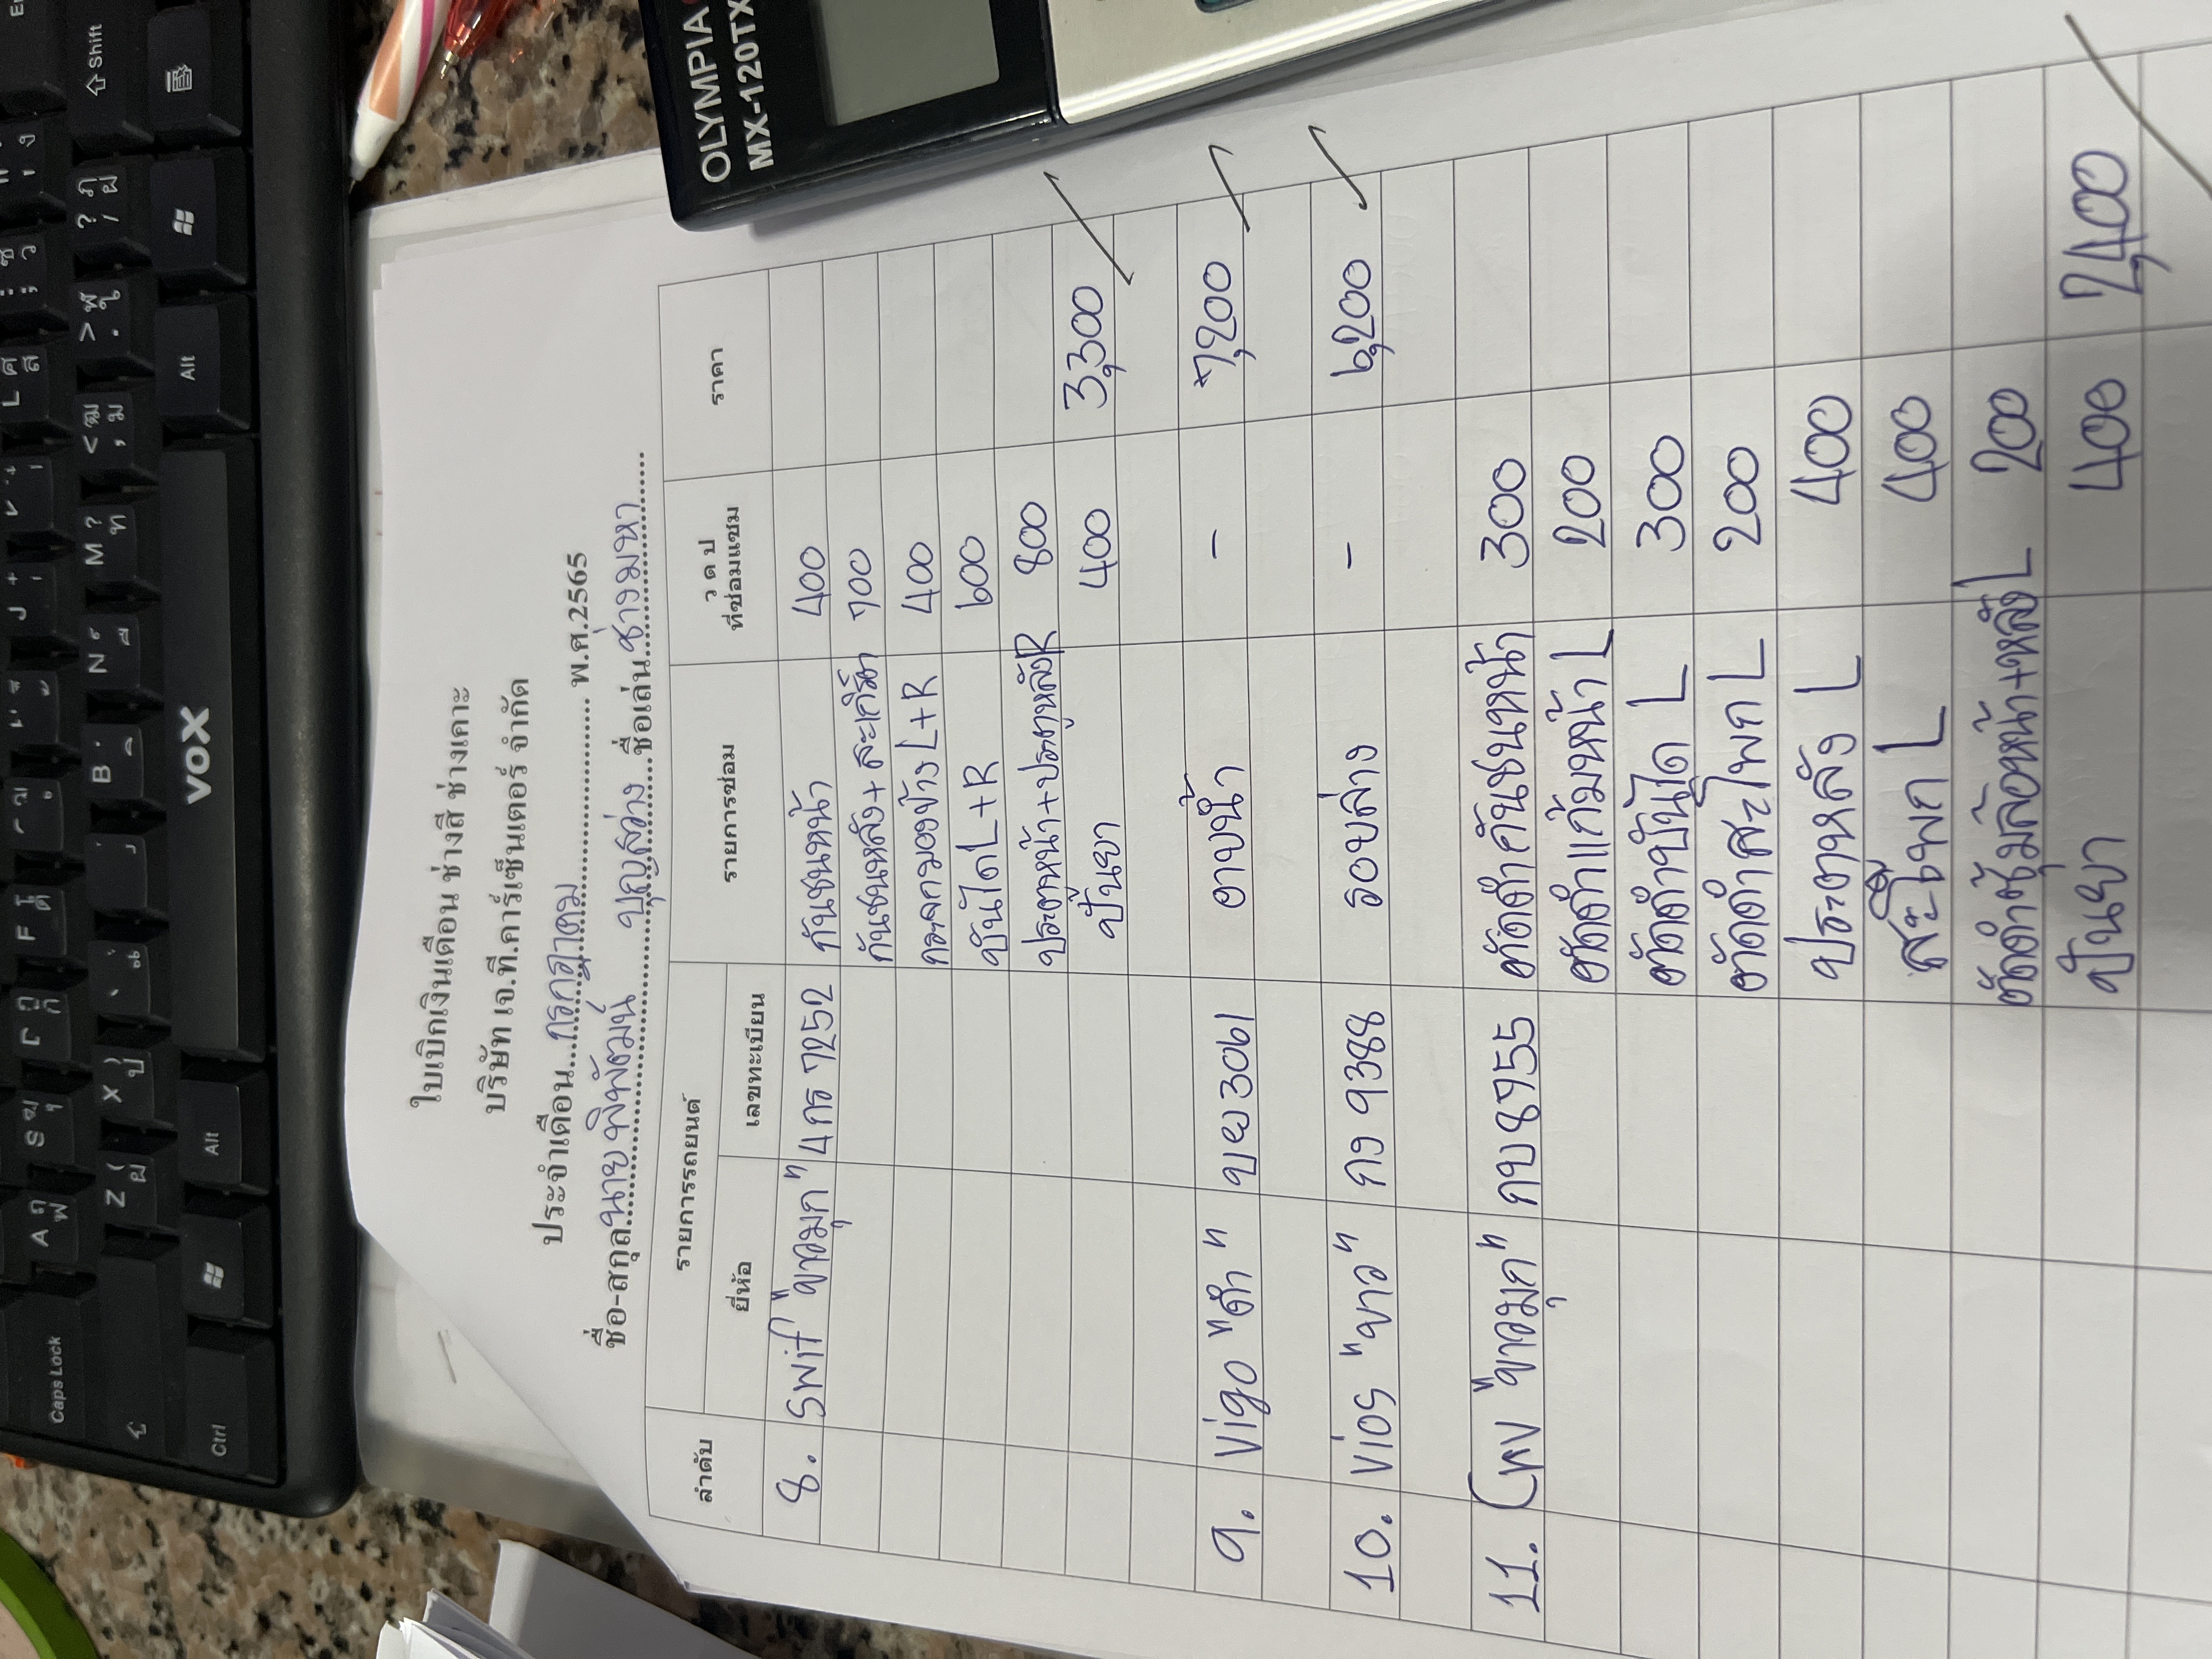 ใบเบิกเงินเดือน ช่างสี ช่างเคาะ
บริษัท เจ.ที.คาร์เซ็นเตอร์ จำกัด
ประจำเดือน...กรกฎาคม............ พ.ศ.2565
ชื่อ-สกุล...นายพิพัฒน์ บุญสว่าง...ชื่อเล่น...ช่างมหา......
ลำดับ รายการรถยนต์ รายการซ่อม ว ด ป ราคา
ยี่ห้อ เลขทะเบียน ที่ซ่อมแซม
8. Swif "ขาวมุก" 4กร 7252 กันชนหน้า 400
กันชนหลัง+สะเกิ๊ต 700
กระจกมองข้าง L+R 400
บันได L+R 600
ประตูหน้า+ประตูหลังR 800
ปั้นยา 400 3,300
9. Vigo "ดำ" ขย 3061 อาบน้ำ - 7,200
10. Vios "ขาว" กง 9388 รอบล่าง - 6,200
11. "ขาวมุก" กบ 8955 ตัดดำกันชนหน้า 300
ตัดดำแก้มหน้า L 200
ตัดดำบันได L 300
ตัดดำสะโพก L 200
ประตูหลัง L 400
สะโพก L 400
ตัดดำซุ้มล้อหน้า+หลัง L 200
ปั้นยา 400 2,400
OLYMPIA
MX-120TX
VOX
Caps Lock
Shift
Ctrl
Alt
Alt
A
S
F
J
L
Z
X
B
N
M